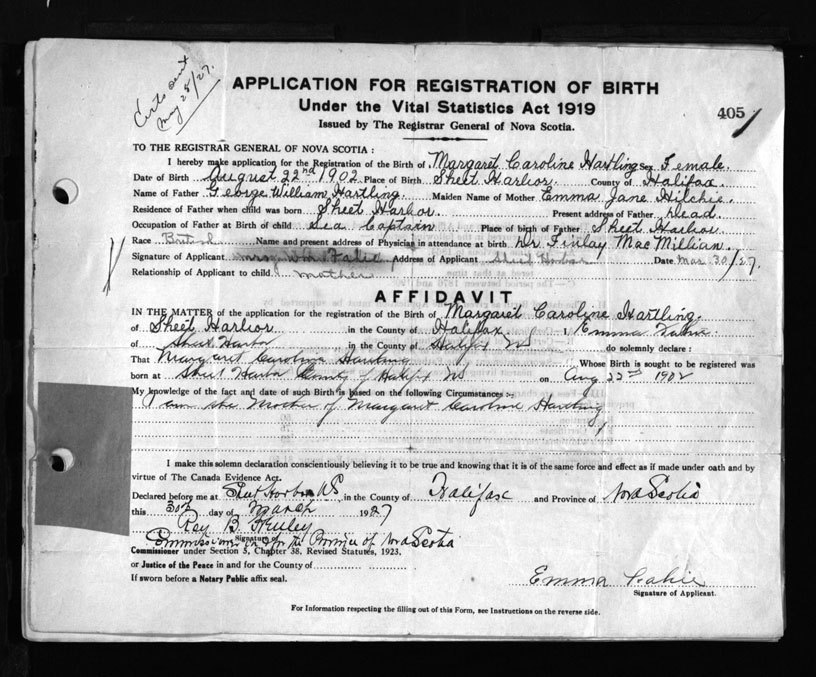 Certs sent
May 28/27.
APPLICATION FOR REGISTRATION OF BIRTH
Under the Vital Statistics Act 1919
405
Issued by The Registrar General of Nova Scotia.
TO THE REGISTRAR GENERAL OF NOVA SCOTIA :
I hereby make application for the Registration of the Birth of Margaret Caroline Hartling Sex Female.
Date of Birth August 22nd 1902 Place of Birth Sheet Harbor. County of Halifax.
Name of Father George William Hartling. Maiden Name of Mother Emma Jane Hilchie.
Residence of Father when child was born Sheet Harbor. Present address of Father Dead.
Occupation of Father at Birth of child Sea Captain Place of birth of Father Sheet Harbor.
Race British Name and present address of Physician in attendance at birth Dr. Finlay MacMillian.
Signature of Applicant Mrs Wm Fahie Address of Applicant Sheet Harbor Date Mar 30/27.
Relationship of Applicant to child mother
AFFIDAVIT
IN THE MATTER of the application for the registration of the Birth of Margaret Caroline Hartling.
of Sheet Harbor in the County of Halifax. I, Emma Fahie
of Sheet Harbor in the County of Halifax NS do solemnly declare :
That Margaret Caroline Hartling Whose Birth is sought to be registered was
born at Sheet Harbor County of Halifax NS on Aug 22nd 1902
My knowledge of the fact and date of such Birth is based on the following Circumstances :-
I am the Mother of Margaret Caroline Hartling
I make this solemn declaration conscientiously believing it to be true and knowing that it is of the same force and effect as if made under oath and by
virtue of The Canada Evidence Act.
Declared before me at Sheet Harbor NS in the County of Halifax and Province of Nova Scotia
this 30th day of March 1927
Roy B.
Signature of
Commissioner in & for the Province of Nova Scotia
Commissioner under Section 5, Chapter 38, Revised Statutes, 1923.
or Justice of the Peace in and for the County of
If sworn before a Notary Public affix seal.
Emma Fahie
Signature of Applicant.
For Information respecting the filling out of this Form, see Instructions on the reverse side.